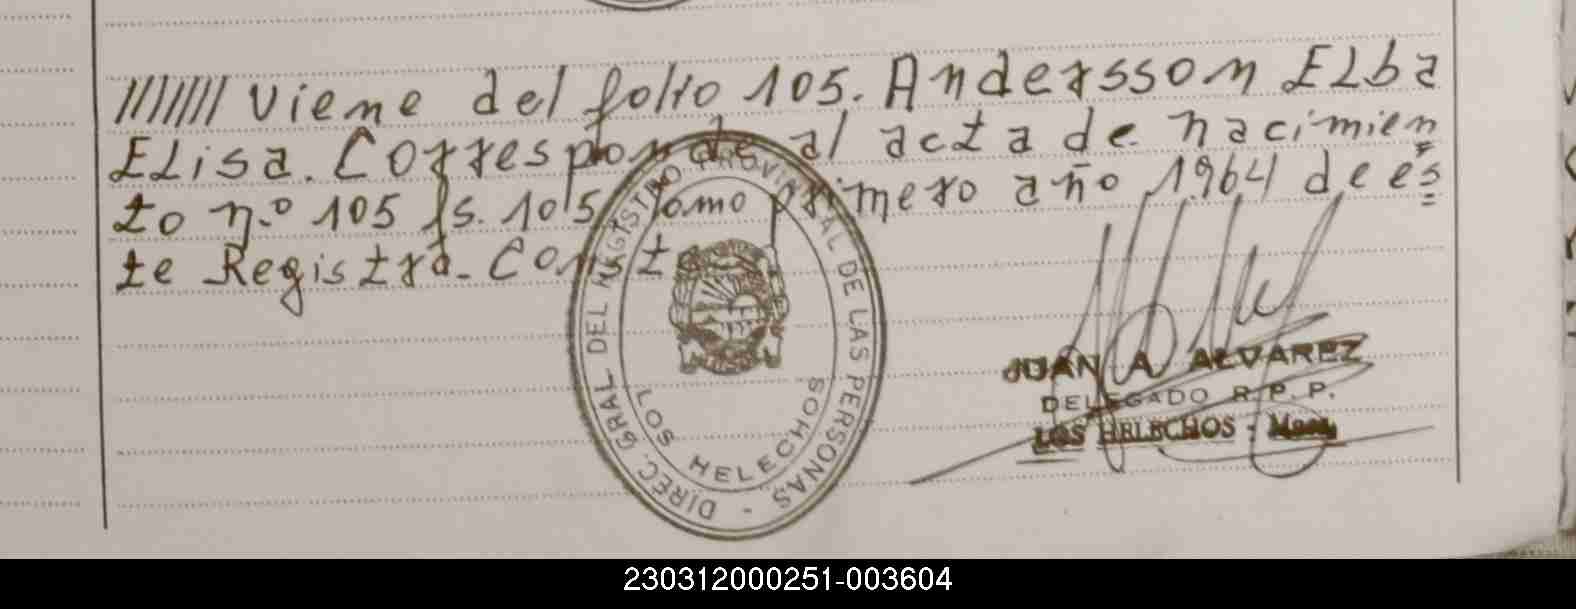 ///////// Viene del folio 105. Andersson Elba
Elisa. Corresponde al acta de nacimien
to n.º 105 fs. 105 Tomo primero año 1964 de és
te Registro. Const
DIREC. GRAL. DEL REGISTRO PROVINCIAL DE LAS PERSONAS -
LOS HELECHOS
JUAN A ALVAREZ
DELEGADO R.P.P.
LOS HELECHOS - Mnes.
230312000251-003604